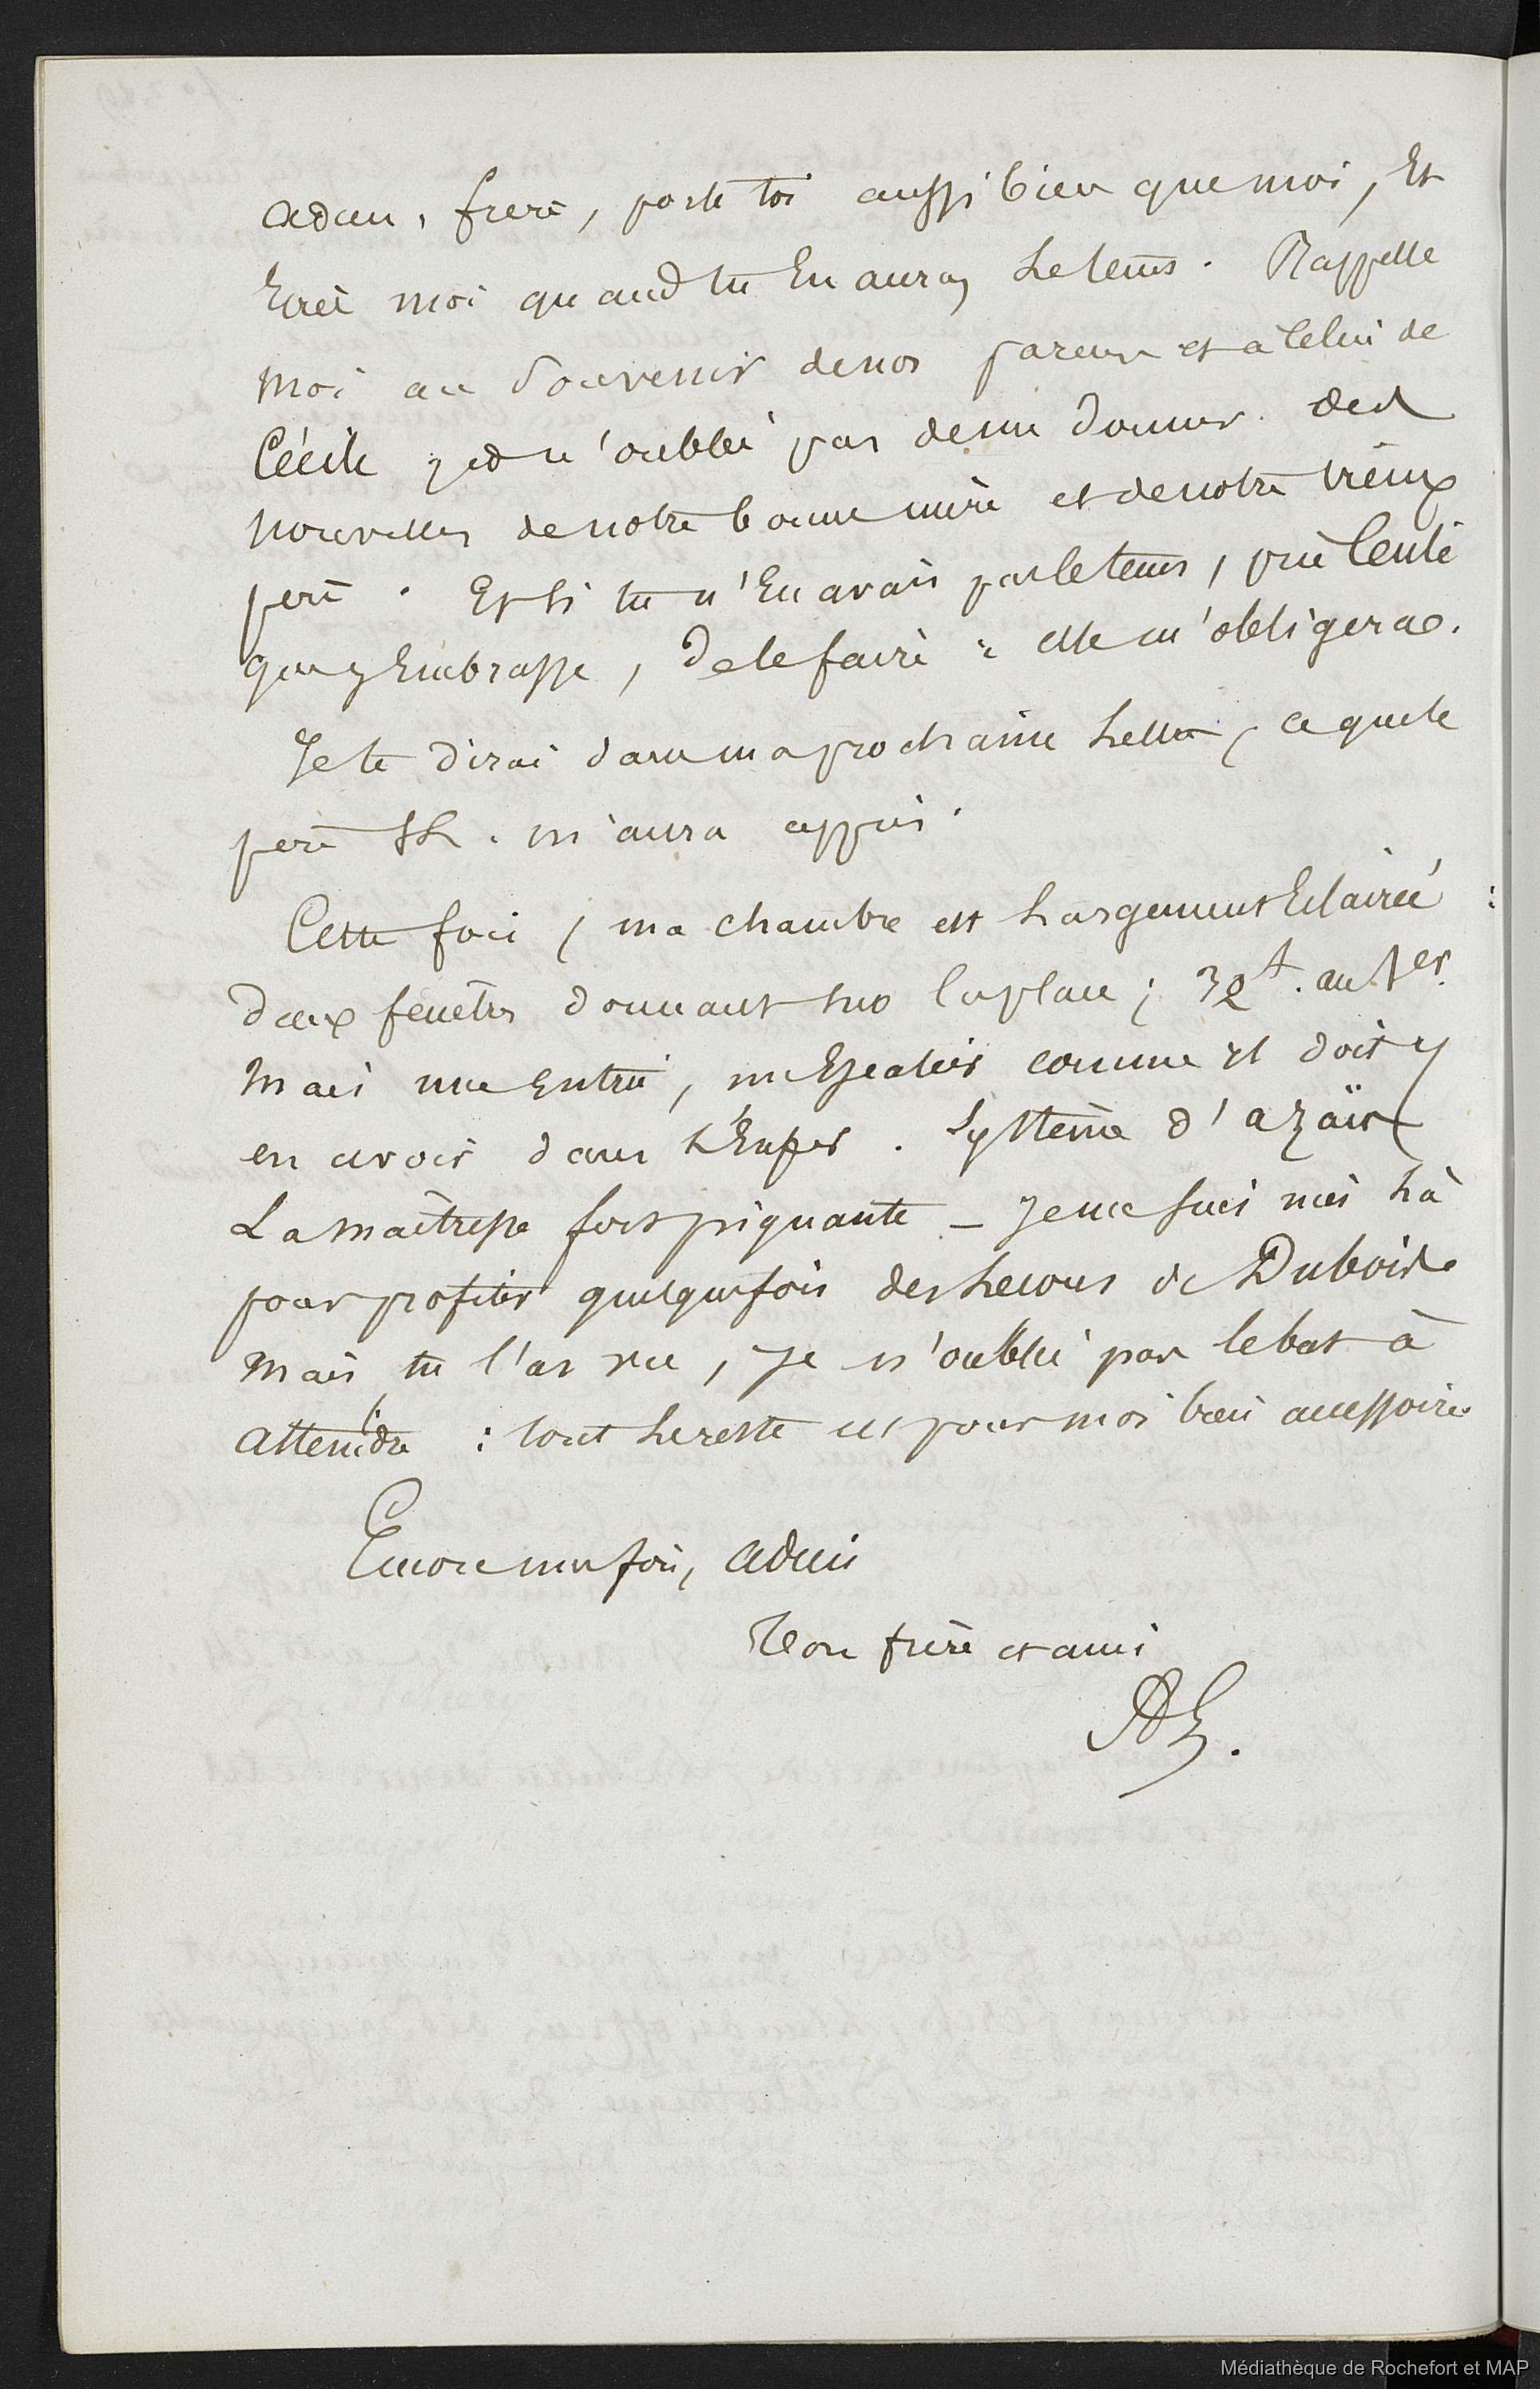 adieu, frere, porte toi aussi bien que moi, Et
Ecris moi quand tu En auras le tems. Rappelle
moi au souvenir de nos parens et à celui de
Cécile, et n'oublie pas de me donner des
nouvelles de notre bonne mère et de notre vieux
père. Et si tu n'En avais pas le tems, prie
que j'Embrasse, de le faire : elle m'obligera.
Je te dirai dans ma prochaine Lettre, ce que le
père m'aura appris.
Cette fois, ma chambre est Largement Eclairée :
deux fenêtres donnant sur la place ; au 1er.
Mais une Entrée, un Escalier comme il doit y
en avoir dans L'Enfer. Système d'azaïs
La maîtresse fort piquante - Je me suis mis Là
pour profiter quelquefois des Lecons de Dubois.
Mais tu l'as vu, Je n'oublie pas le but à
atteindre : tout Le reste est pour moi bien accessoire.
Encore une fois, adieu
Ton frère et ami